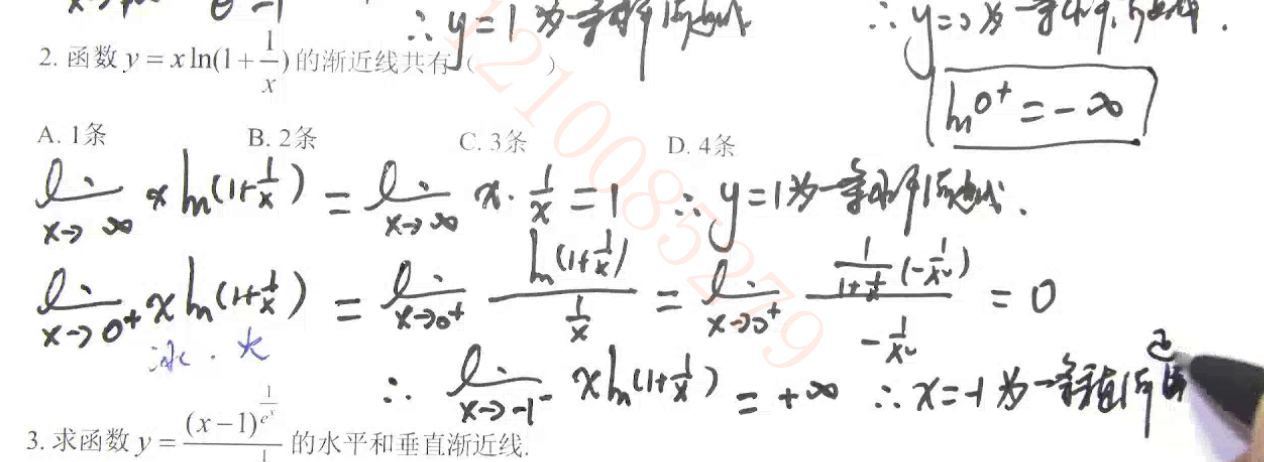 ∴ y=1 为一条水平渐近线
∴ y=0 为一条水平渐近线.
2. 函数 y = x ln(1+1/x) 的渐近线共有( )
ln0⁺ = -∞
A. 1条 B. 2条 C. 3条 D. 4条
lim x→∞ x ln(1+1/x) = lim x→∞ x·1/x = 1 ∴ y=1为一条水平渐近线.
lim x→0⁺ x ln(1+1/x) = lim x→0⁺ ln(1+1/x) / (1/x) = lim x→0⁺ (1/(1+1/x) (-1/x²)) / (-1/x²) = 0
冰. 火
∴ lim x→-1⁻ x ln(1+1/x) = +∞ ∴ x=-1 为一条垂直渐近
3. 求函数 y = (x-1)^(1/eˣ) / 1 的水平和垂直渐近线.
1210085279